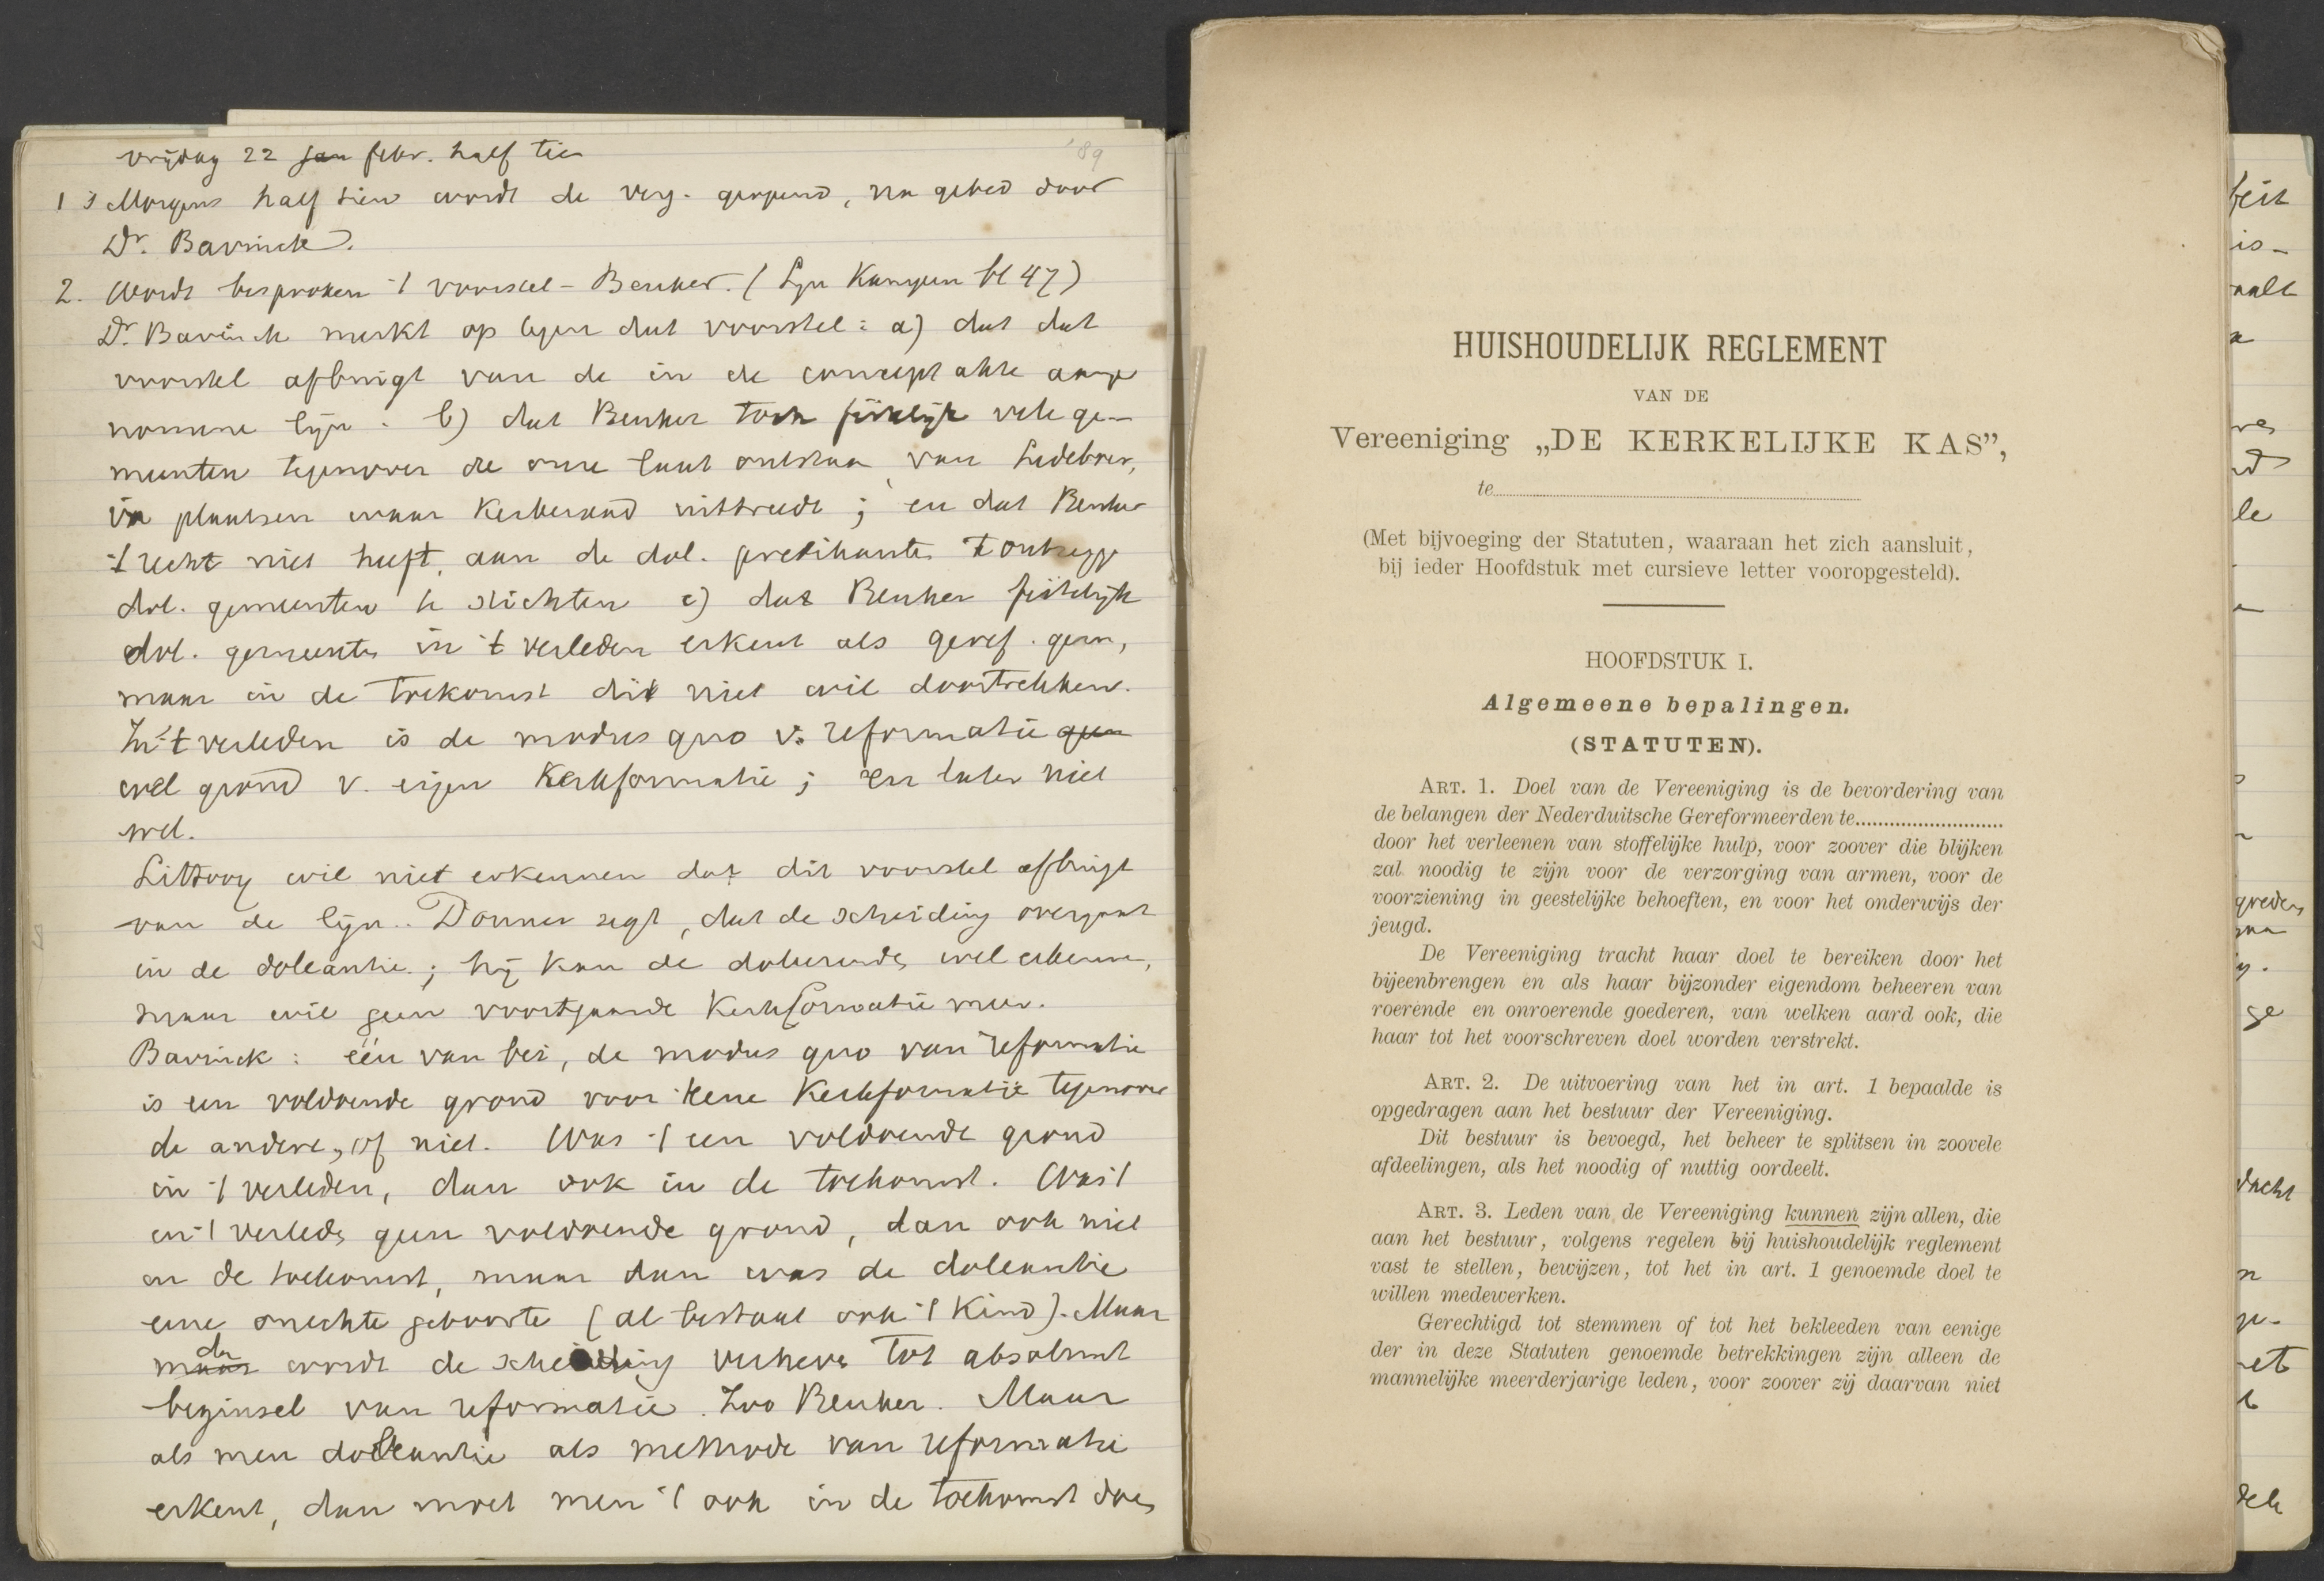 vrijdag 22 jan febr. half tien
'89
1 's Morgens half tien wordt de verg. geopend, na gebed door
Dr. Bavinck.
2. Wordt besproken 't voorstel - Beuker. (Zijn Kampen bl 47)
Dr. Bavinck merkt op tegen dat voorstel: a) dat dat
voorstel afbuigt van de in de concept akte aange
nomene lijn. b) dat Beuker toch feitelijk vele ge-
meenten tegenover de onze laat ontstaan, van Ledeboer,
in plaatsen waar Kerkeraad uittreedt; en dat Beuker
't recht niet heeft, aan de dol. predikanten t ontzegge
dol. gemeenten te stichten c) dat Beuker feitelijk
dol. gemeenten in 't verleden erkent als geref. gem,
maar in de toekomst dit niet wil doortrekken.
In 't verleden is de modus quo v. reformatie geen
wel grond v. eigen Kerkformatie; en later niet
wel.
Littooy wil niet erkennen dat dit voorstel afbuigt
van de lijn. Donner zegt, dat de scheiding overgaat
in de doleantie; hij kan de doleerende wel erkenne,
maar wil geen voortgaande Kerkformatie meer.
Bavinck: één van bei, de modus quo van reformatie
is een voldoende grond voor eene Kerkformatie tegenover
de andere, of niet. Was 't een voldoende grond
in 't verleden, dan ook in de toekomst. Was 't
in 't verleden geen voldoende grond, dan ook niet
in de toekomst, maar dan was de doleantie
eene onechte geboorte (al bestaat ook 't Kind). Maar
maar dan wordt de scheiding verheven tot absoluut
beginsel van reformatie. Zoo Beuker. Maar
als men doleantie als methode van reformatie
erkent, dan moet men 't ook in de toekomst doen
HUISHOUDELIJK REGLEMENT
VAN DE
Vereeniging „DE KERKELIJKE KAS”,
te
(Met bijvoeging der Statuten, waaraan het zich aansluit,
bij ieder Hoofdstuk met cursieve letter vooropgesteld).
HOOFDSTUK I.
Algemeene bepalingen.
(STATUTEN).
ART. 1. Doel van de Vereeniging is de bevordering van
de belangen der Nederduitsche Gereformeerden te..........................
door het verleenen van stoffelijke hulp, voor zoover die blijken
zal noodig te zijn voor de verzorging van armen, voor de
voorziening in geestelijke behoeften, en voor het onderwijs der
jeugd.
De Vereeniging tracht haar doel te bereiken door het
bijeenbrengen en als haar bijzonder eigendom beheeren van
roerende en onroerende goederen, van welken aard ook, die
haar tot het voorschreven doel worden verstrekt.
ART. 2. De uitvoering van het in art. 1 bepaalde is
opgedragen aan het bestuur der Vereeniging.
Dit bestuur is bevoegd, het beheer te splitsen in zoovele
afdeelingen, als het noodig of nuttig oordeelt.
ART. 3. Leden van de Vereeniging kunnen zijn allen, die
aan het bestuur, volgens regelen bij huishoudelijk reglement
vast te stellen, bewijzen, tot het in art. 1 genoemde doel te
willen medewerken.
Gerechtigd tot stemmen of tot het bekleeden van eenige
der in deze Statuten genoemde betrekkingen zijn alleen de
mannelijke meerderjarige leden, voor zoover zij daarvan niet